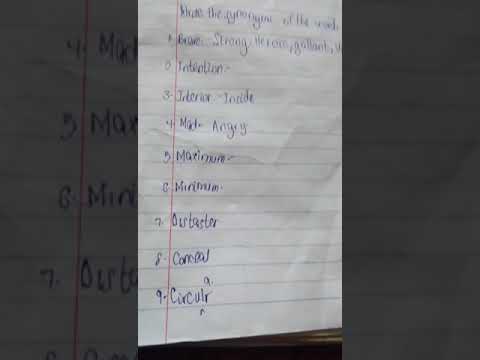 Write the synonyms of the word.
1. Brave. Strong, Heroic, gallant,
2. Intention-
3. Interior.-Inside
4. Mad- Angry
5. Maximum-
6. Minimum-
7. Distaster
8. Conceal
9. Circulr
a.
r